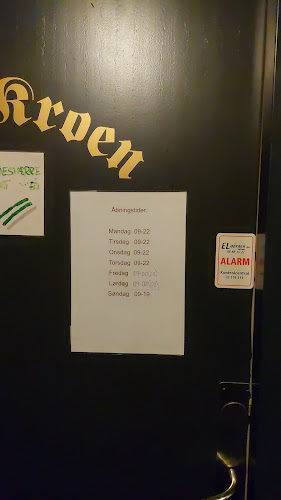 Kroen
Åbningstider:
Mandag 09-22
Tirsdag 09-22
Onsdag 09-22
Torsdag 09-22
Fredag
Lørdag
Søndag 09-19
ALARM
Kontrolcentral